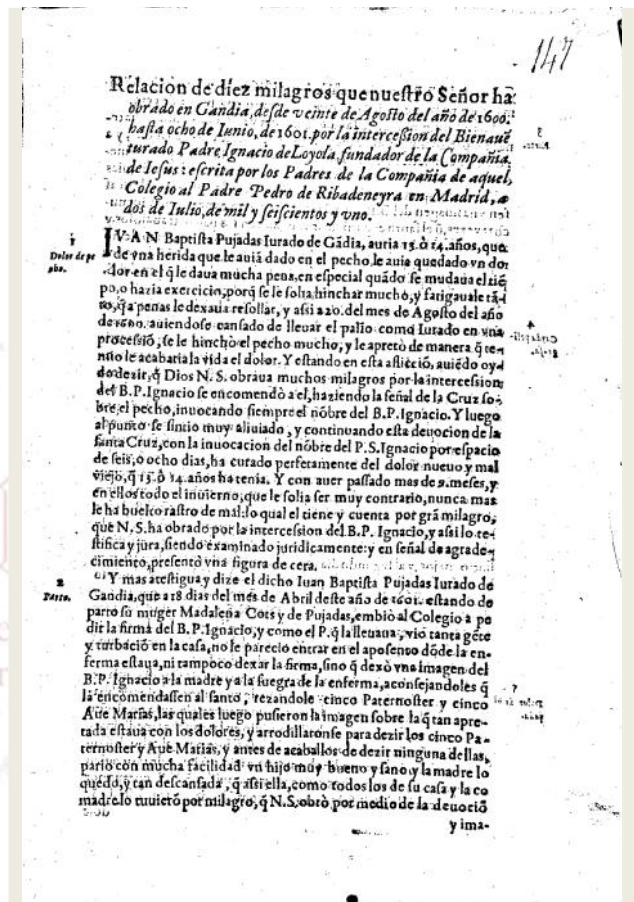 147
Relacion de diez milagros que nuestro Señor ha
obrado en Gandia, desde veinte de Agosto del año de 1600.
hasta ocho de Iunio, de 1601. por la intercession del Bienauē
turado Padre Ignacio de Loyola, fundador de la Compañia
de Iesus: escrita por los Padres de la Compañia de aquel
Colegio al Padre Pedro de Ribadeneyra en Madrid, a
dos de Iulio, de mil y seiscientos y vno.
1
Dolor de pe
cho.
IVAN Baptista Pujadas Iurado de Gādia, auria 13. ò 14. años, que
de vna herida que le auiā dado en el pecho, le auia quedado vn do
lor en el q̄ le daua mucha pena, en especial quādo se mudaua el tiē
po, o hazia exercicio, porq̄ se le solia hinchar mucho, y fatigauale tā
to, q̄ a penas le dexaua resollar, y assi a 20. del mes de Agosto del año
de 1600. auiendose cansado de lleuar el palio como Iurado en vna
processiō, se le hinchò el pecho mucho, y le apretò de manera q̄ te
miò le acabaria la vida el dolor. Y estando en esta afliciō, auiēdo oy
do dezir, q̄ Dios N. S. obraua muchos milagros por la intercession
del B. P. Ignacio se encomendò a el, haziendo la señal de la Cruz so-
bre el pecho, inuocando siempre el nōbre del B. P. Ignacio. Y luego
al punto se sintio muy aliuiado, y continuando esta deuocion de la
santa Cruz, con la inuocacion del nōbre del P. S. Ignacio por espacio
de seis, o ocho dias, ha curado perfetamente del dolor nueuo y mal
viejo, q̄ 13. ò 14. años ha tenia. Y con auer passado mas de 9. meses, y
en ellos todo el inuierno, que le solia ser muy contrario, nunca mas
le ha buelto rastro de mal: lo qual el tiene y cuenta por grā milagro,
que N. S. ha obrado por la intercession del B. P. Ignacio, y assi lo te-
stifica y jura, siendo examinado juridicamente: y en señal de agrade-
cimiento, presentò vna figura de cera.
2
Parto.
Y mas atestigua y dize el dicho Iuan Baptista Pujadas Iurado de
Gandia, que a 18 dias del mes de Abril deste año de 1601. estando de
parto su muger Madalena Cots y de Pujadas, embiò al Colegio a pe
dir la firma del B. P. Ignacio, y como el P. q̄ la lleuaua, vio tanta gēte
y turbaciō en la casa, no le pareciò entrar en el aposento dōde la en-
ferma estaua, ni tampoco dexar la firma, sino q̄ dexò vna imagen del
B. P. Ignacio a la madre y a la suegra de la enferma, aconsejandoles q̄
la encomendassen al santo, rezandole cinco Paternoster y cinco
Aue Marias, las quales luego pusieron la imagen sobre la q̄ tan apre-
tada estaua con los dolores, y arrodillaronse para dezir los cinco Pa-
ternoster y Aue Marias, y antes de acaballos de dezir ninguna dellas,
pario con mucha facilidad vn hijo muy bueno y sano, y la madre lo
quedò, y tan descansada, q̄ assi ella, como todos los de su casa y la co
madre lo tuuierō por milagro, q̄ N. S. obrò por medio de la deuociō
y ima-